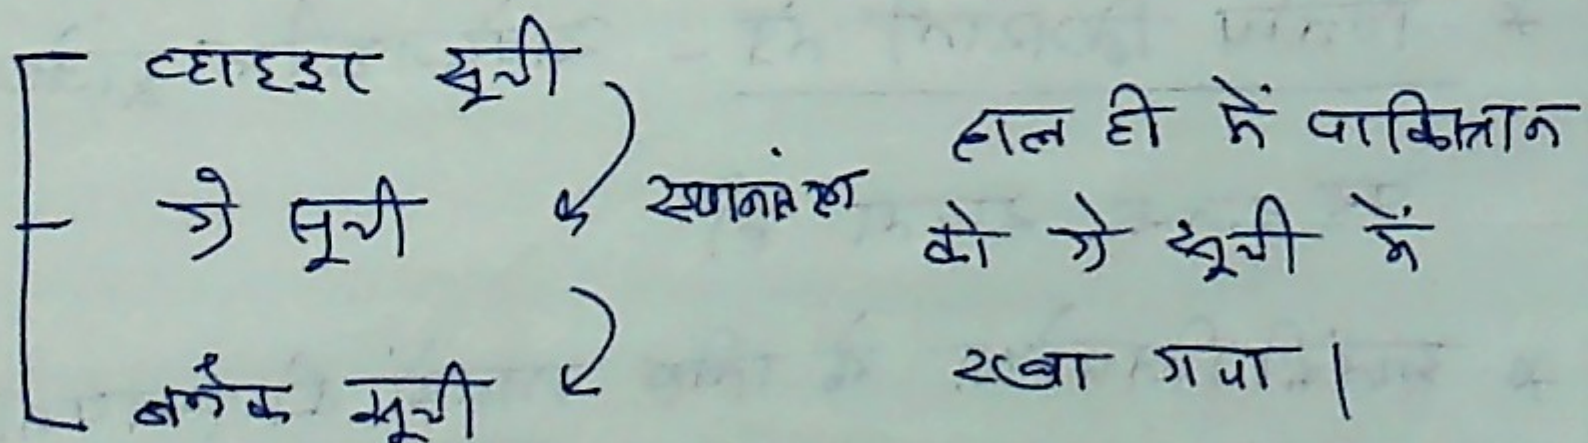 व्हाइट सूची
ग्रे सूची
ब्लैक सूची
स्थानांतरण
हाल ही में पाकिस्तान
को ग्रे सूची में
रखा गया।